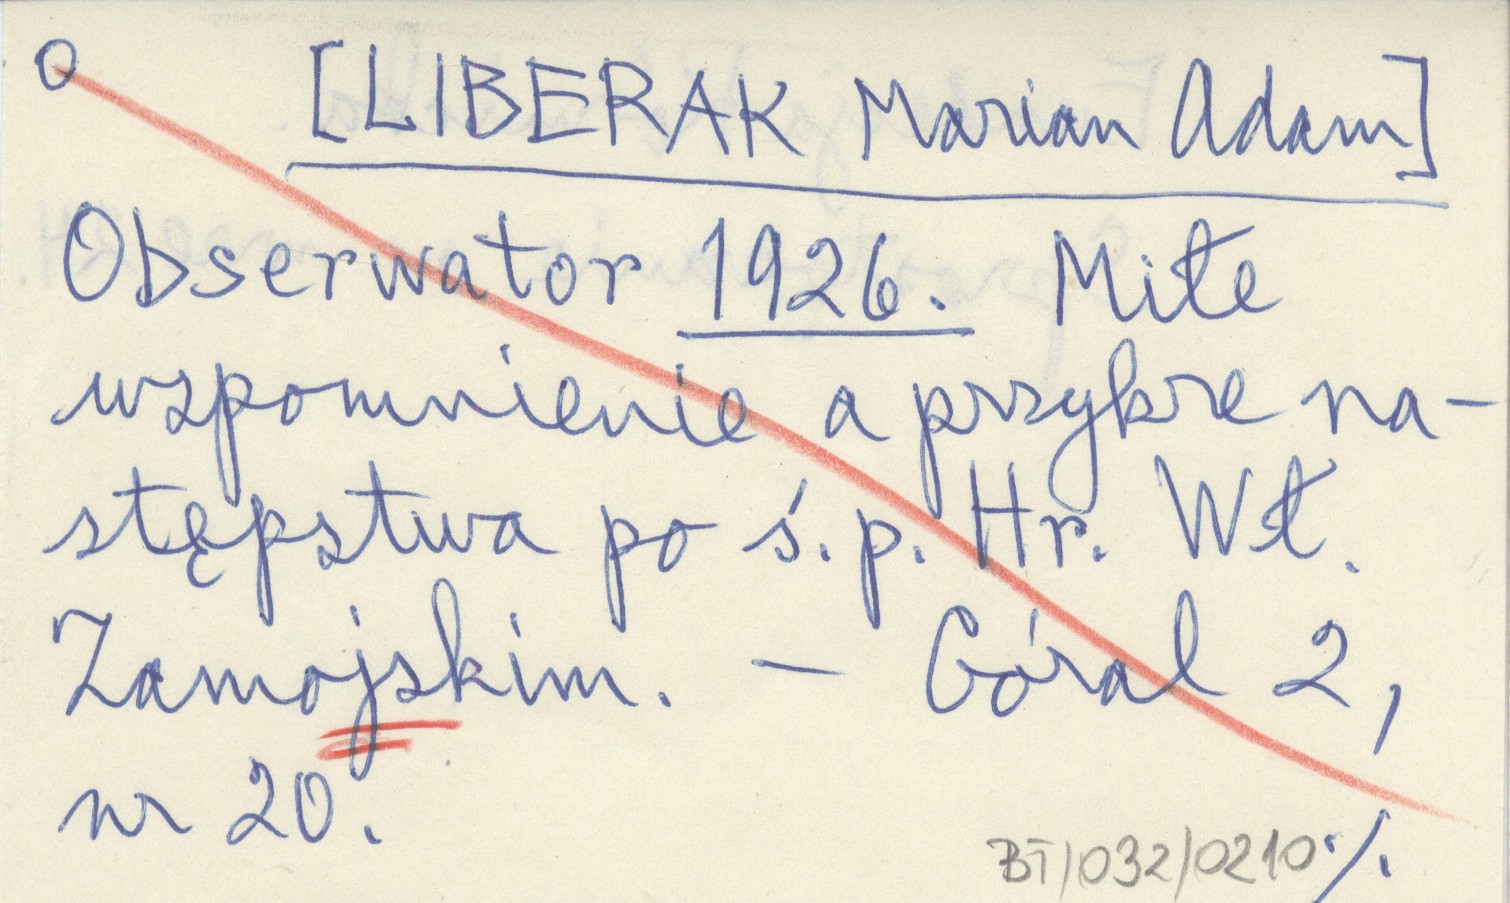 O [LIBERAK Marian Adam]
Obserwator 1926. Miłe
wspomnienie a przykre na-
stępstwa po ś.p. Hr. Wł.
Zamojskim. – Góral 2,
nr 20.
BT/032/0210 ·/.